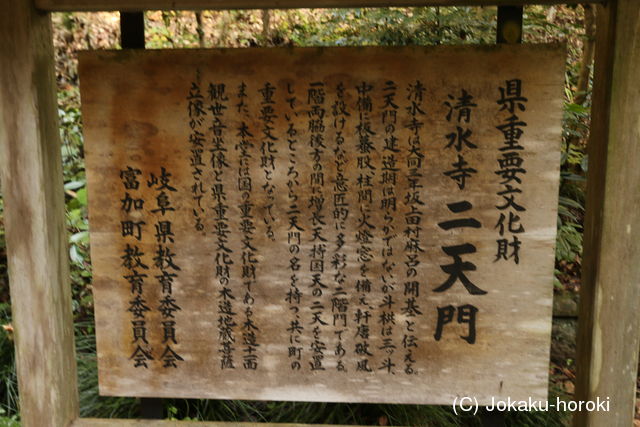 県重要文化財
清水寺 二天門
清水寺は大同三年坂上田村麻呂の開基と伝える。
二天門の建造期は明らかではないが斗栱は三ッ斗、
中備に板蟇股、柱間に火燈窓を備え軒唐破風
を設けるなど意匠的に多彩な二階門である。
一階両脇後方の間に増長天持国天の二天を安置
しているところから二天門の名を持つ。共に町の
重要文化財となっている。
また、本堂には国の重要文化財である木造十一面
観世音坐像と県重要文化財の木造地蔵菩薩
立像が安置されている。
岐阜県教育委員会
富加町教育委員会
(C) Jokaku-horoki